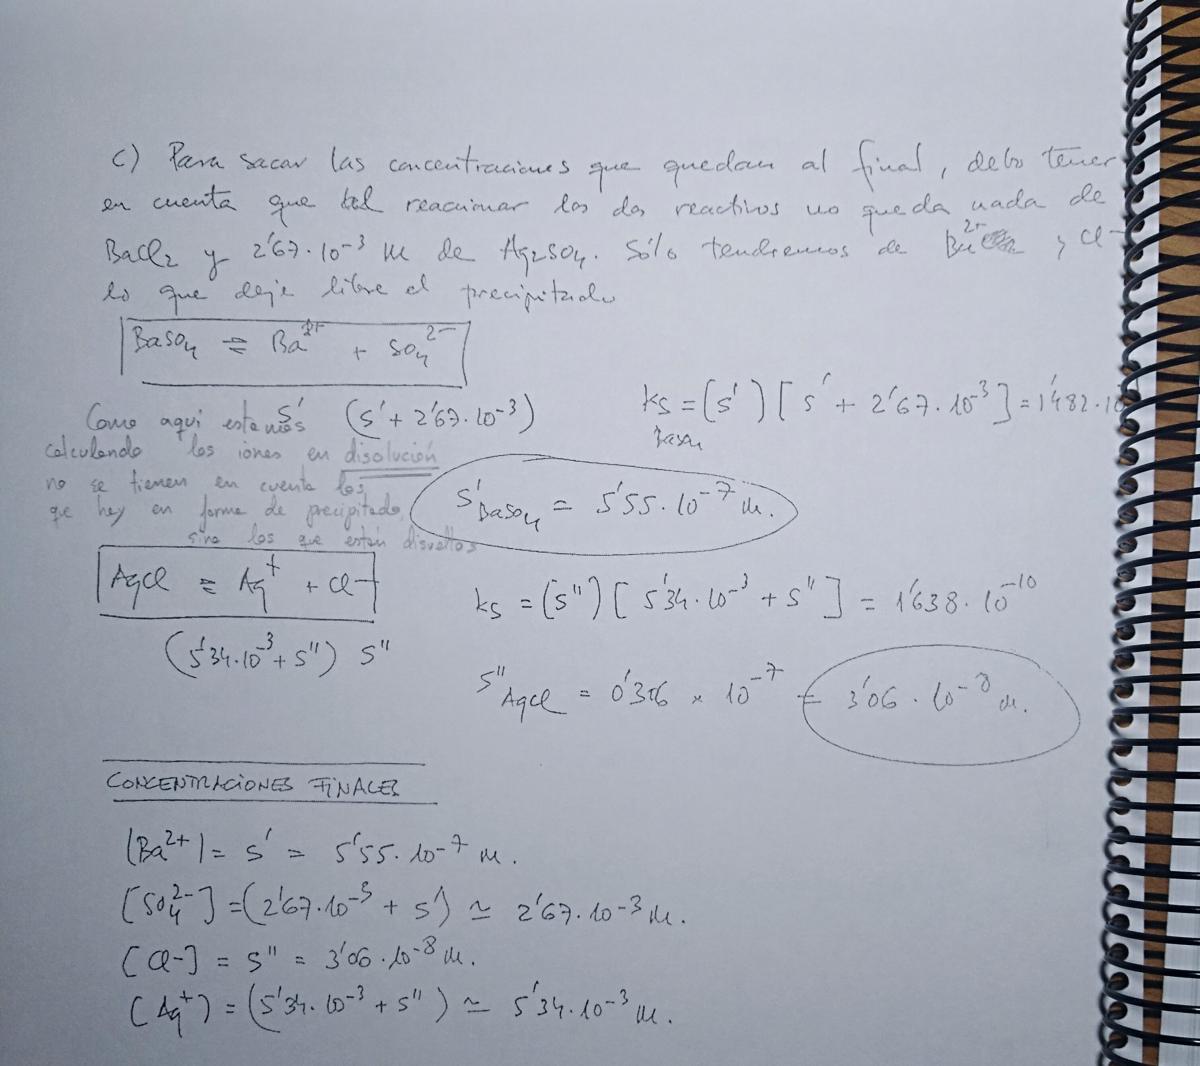 c) Para sacar las concentraciones que quedan al final, debo tener
en cuenta que al reaccionar los dos reactivos no queda nada de
BaCl2 y 2'67·10-3 M de Ag2SO4. Sólo tendremos de Ba2+ y Cl-
lo que deje libre el precipitado
BaSO4 ⇌ Ba2+ + SO4 2-
S' (S' + 2'67·10-3)
Ks = (S') [S' + 2'67·10-3] = 1'482·10
BaSO4
Como aquí estamos
calculando los iones en disolución
no se tienen en cuenta los
que hay en forma de precipitado,
sino los que están disueltos
S'BaSO4 = 5'55·10-7 M.
AgCl ⇌ Ag+ + Cl-
(5'34·10-3 + S'') S''
Ks = (S'') [5'34·10-3 + S''] = 1'638·10-10
S''AgCl = 0'306 x 10-7 = 3'06·10-8 M.
CONCENTRACIONES FINALES
[Ba2+] = S' = 5'55·10-7 M.
[SO4 2-] = (2'67·10-3 + S') ≃ 2'67·10-3 M.
[Cl-] = S'' = 3'06·10-8 M.
(Ag+) = (5'34·10-3 + S'') ≃ 5'34·10-3 M.